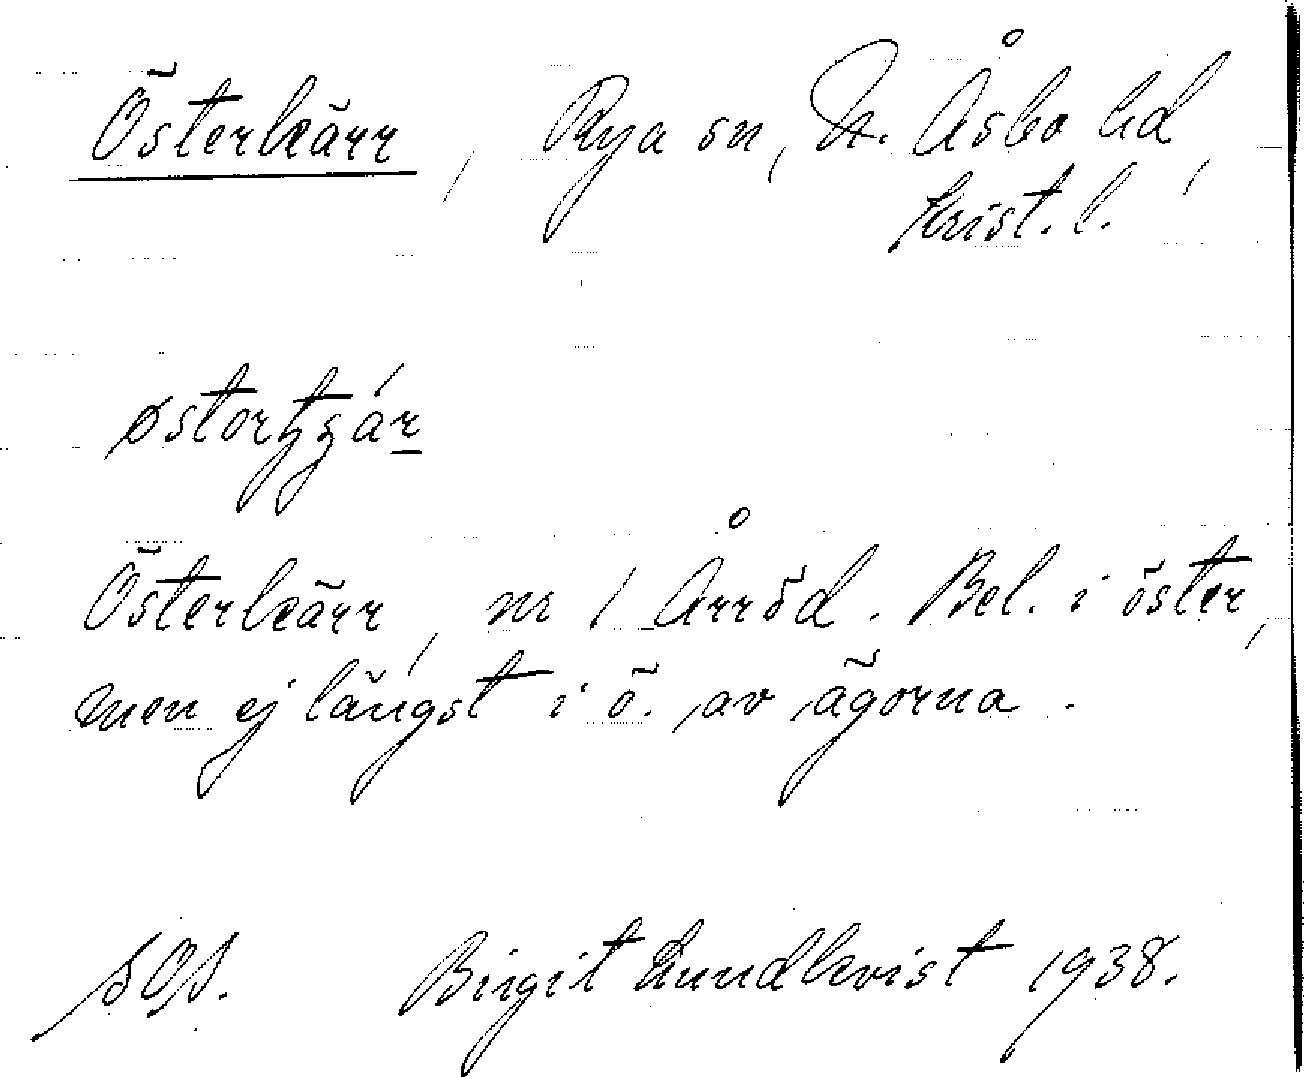 Österkärr, Rya sn, N. Åsbo hd,
Krist. l.
Österkärr, nr 1 Årröd. Bel. i öster,
men ej längst i ö. av ägorna.
SOS. Birgit Lundkvist 1938.